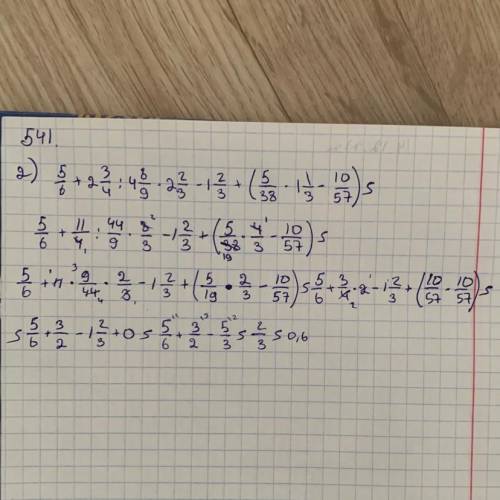 541.
2) 5/6 + 2 3/4 : 4 8/9 · 2 2/3 - 1 2/3 + (5/38 · 1 1/3 - 10/57) =
5/6 + 11/4 : 44/9 · 8/3 - 1 2/3 + (5/38 · 4/3 - 10/57) =
5/6 + 11 · 9/44 · 2/3 - 1 2/3 + (5/19 · 2/3 - 10/57) = 5/6 + 3/4 · 2 - 1 2/3 + (10/57 - 10/57) =
= 5/6 + 3/2 - 1 2/3 + 0 = 5/6 + 3/2 - 5/3 = 2/3 = 0,6